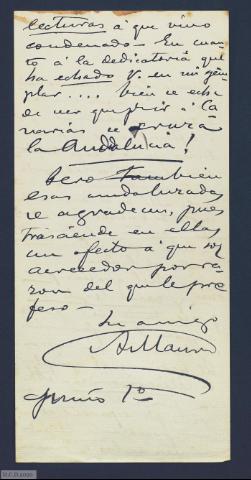 lecturas á que vivo
condenado.- En cuan-
to á la dedicatoria que
ha echado V. en mi ejem-
plar.... bien se echa
de ver que para ir á Ca-
narias se cruza
la Andalucía!
Pero tambien
esas andaluzadas
se agradecen, pues
trasciende en ellas
un afecto á que soy
acreedor por ra-
zon del que le pro-
feso-
Su amigo
AMaura
Junio 1º